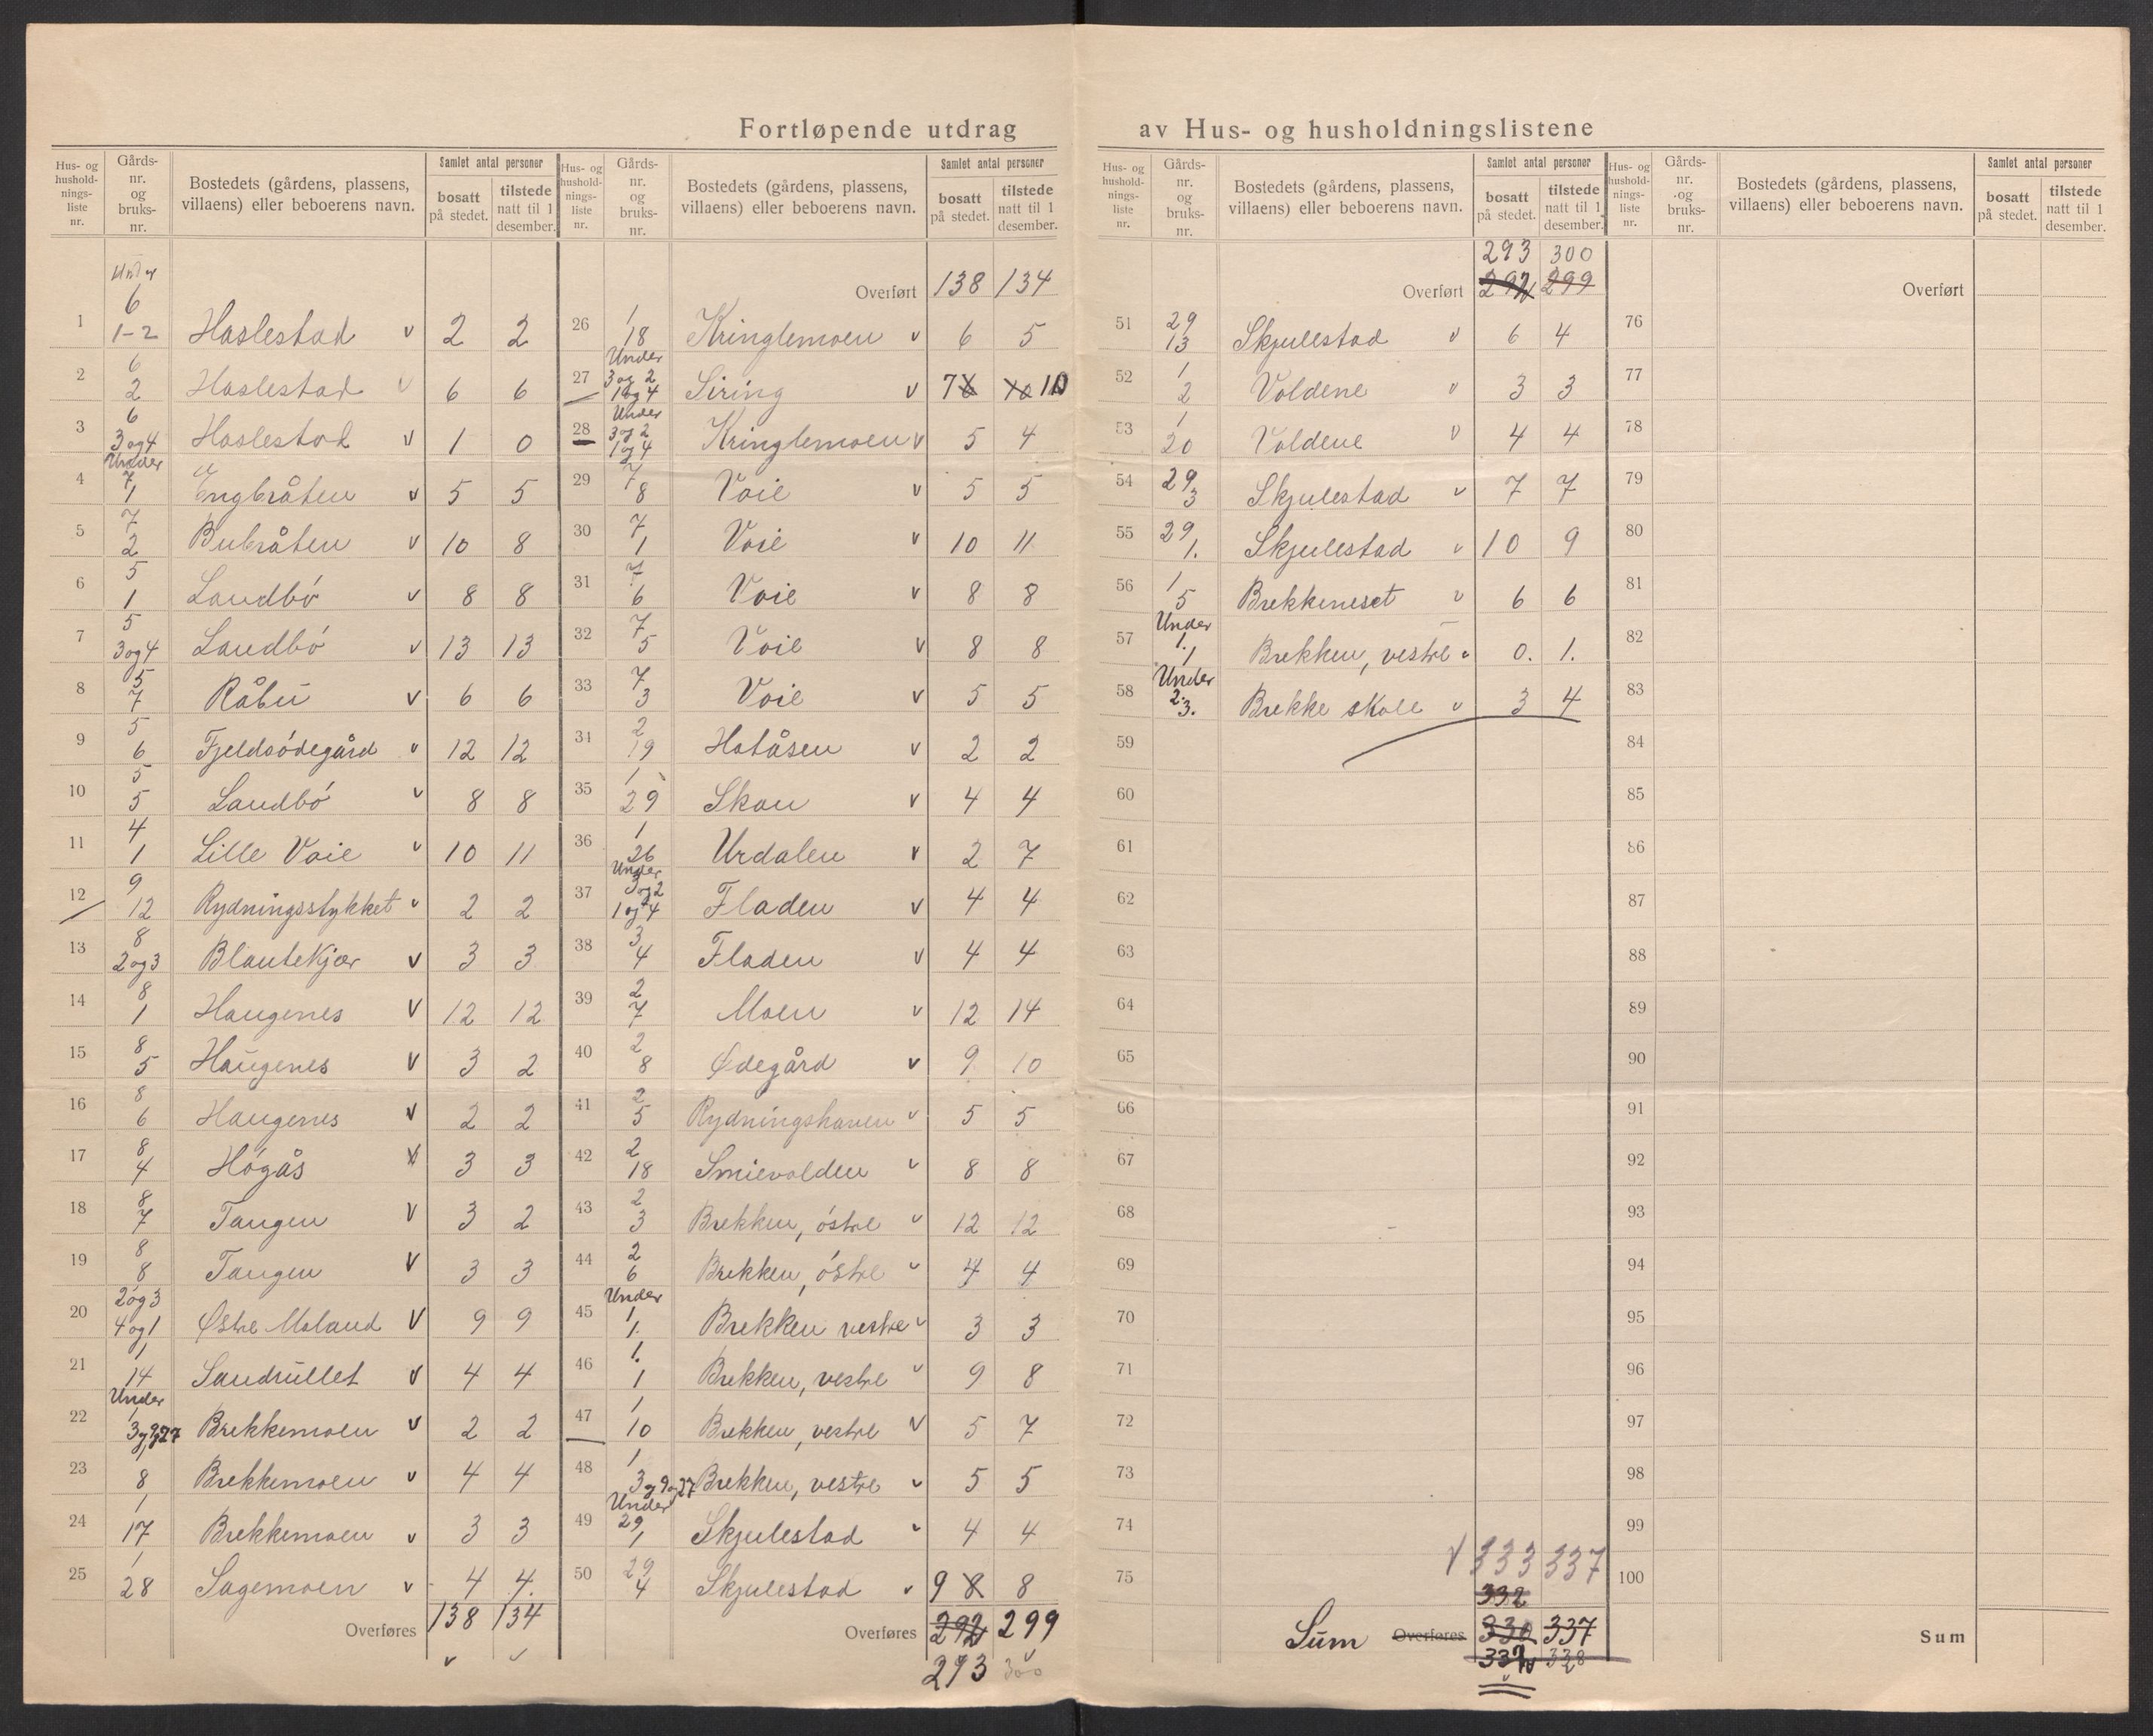 Fortløpende utdrag av Hus- og husholdningslistene
Hus- og hushold-nings-liste nr. | Gårds-nr. og bruks-nr. | Bostedets (gårdens, plassens, villaens) eller beboerens navn. | Samlet antal personer | bosatt på stedet. | tilstede natt til 1 desember.
1 | Under 6 1-2 | Haslestad v | 2 | 2
2 | 6 2 | Haslestad v | 6 | 6
3 | 6 3 og 4 | Haslestad v | 1 | 0
4 | Under 7 1 | Engbråten v | 5 | 5
5 | 7 2 | Bubråten v | 10 | 8
6 | 5 1 | Landbó v | 8 | 8
7 | 5 3 og 4 | Landbó v | 13 | 13
8 | 5 7 | Råbu v | 6 | 6
9 | 5 6 | Fjeldsódegård v | 12 | 12
10 | 5 5 | Landbó v | 8 | 8
11 | 4 1 | Lille Voie v | 10 | 11
12 | 9 12 | Rydningsstykket v | 2 | 2
13 | 8 2 og 3 | Blautekjær v | 3 | 3
14 | 8 1 | Haugenes v | 12 | 12
15 | 8 5 | Haugenes v | 3 | 2
16 | 8 6 | Haugenes v | 2 | 2
17 | 8 4 | Hógås | 3 | 3
18 | 8 7 | Tangen v | 3 | 2
19 | 8 8 | Tangen v | 3 | 3
20 | 2 og 3 4 og 1 | Østre Moland v | 9 | 9
21 | 1 14 | Sandrullet v | 4 | 4
22 | Under 1 3 og 9 og 27 | Brekkemoen v | 2 | 2
23 | 1 8 | Brekkemoen v | 4 | 4
24 | 1 17 | Brekkemoen v | 3 | 3
25 | 1 28 | Sagemoen v | 4 | 4.
Overføres 138 134
v v
Hus- og hushold-nings-liste nr. | Gårds-nr. og bruks-nr. | Bostedets (gårdens, plassens, villaens) eller beboerens navn. | Samlet antal personer | bosatt på stedet. | tilstede natt til 1 desember.
Overført 138 134
26 | 1 18 | Kringlemoen v | 6 | 5
27 | Under 3 og 2 1 og 4 | Siring v | 7 8 | 10 10
28 | Under 3 og 2 1 og 4 | Kringlemoen v | 5 | 4
29 | 7 8 | Voie v | 5 | 5
30 | 7 1 | Voie v | 10 | 11
31 | 7 6 | Voie v | 8 | 8
32 | 7 5 | Voie v | 8 | 8
33 | 7 3 | Voie v | 5 | 5
34 | 2 19 | Hatåsen v | 2 | 2
35 | 1 29 | Skau v | 4 | 4
36 | 1 26 | Urdalen v | 2 | 7
37 | Under 3 og 2 1 og 4 | Fladen v | 4 | 4
38 | 3 4 | Fladen v | 4 | 4
39 | 2 7 | Moen v | 12 | 14
40 | 2 8 | Ødegård v | 9 | 10
41 | 2 5 | Rydningshaven v | 5 | 5
42 | 2 18 | Smievolden v | 8 | 8
43 | 2 3 | Brekken, óstre v | 12 | 12
44 | 2 6 | Brekken, óstre v | 4 | 4
45 | Under 1 1. | Brekken vestre v | 3 | 3
46 | 1. 1 | Brekken, vestre v | 9 | 8
47 | 1 10 | Brekken, vestre v | 5 | 7
48 | 1 3 og 9 og 27 | Brekken, vestre v | 5 | 5
49 | Under 29 1 | Skjulestad v | 4 | 4
50 | 29 4 | Skjulestad v | 9 8 | 8
Overføres 292 299
293 300
Hus- og hushold-nings-liste nr. | Gårds-nr. og bruks-nr. | Bostedets (gårdens, plassens, villaens) eller beboerens navn. | Samlet antal personer | bosatt på stedet. | tilstede natt til 1 desember.
293 300
Overført 292 299
51 | 29 13 | Skjulestad v | 6 | 4
52 | 1 2 | Voldene v | 3 | 3
53 | 1 20 | Voldene v | 4 | 4
54 | 29 3 | Skjulestad v | 7 | 7
55 | 29 1. | Skjulestad v | 10 | 9
56 | 1 5 | Brekkeneset v | 6 | 6
57 | Under 1. 1 | Brekken, vestre v | 0. | 1.
58 | Under 2. 3. | Brekke skole v | 3 | 4
59
60
61
62
63
64
65
66
67
68
69
70
71
72
73
74
75
v 333 337
332
Sum Overføres 330 337
332 338
Hus- og hushold-nings-liste nr. | Gårds-nr. og bruks-nr. | Bostedets (gårdens, plassens, villaens) eller beboerens navn. | Samlet antal personer | bosatt på stedet. | tilstede natt til 1 desember.
Overført
76
77
78
79
80
81
82
83
84
85
86
87
88
89
90
91
92
93
94
95
96
97
98
99
100
Sum